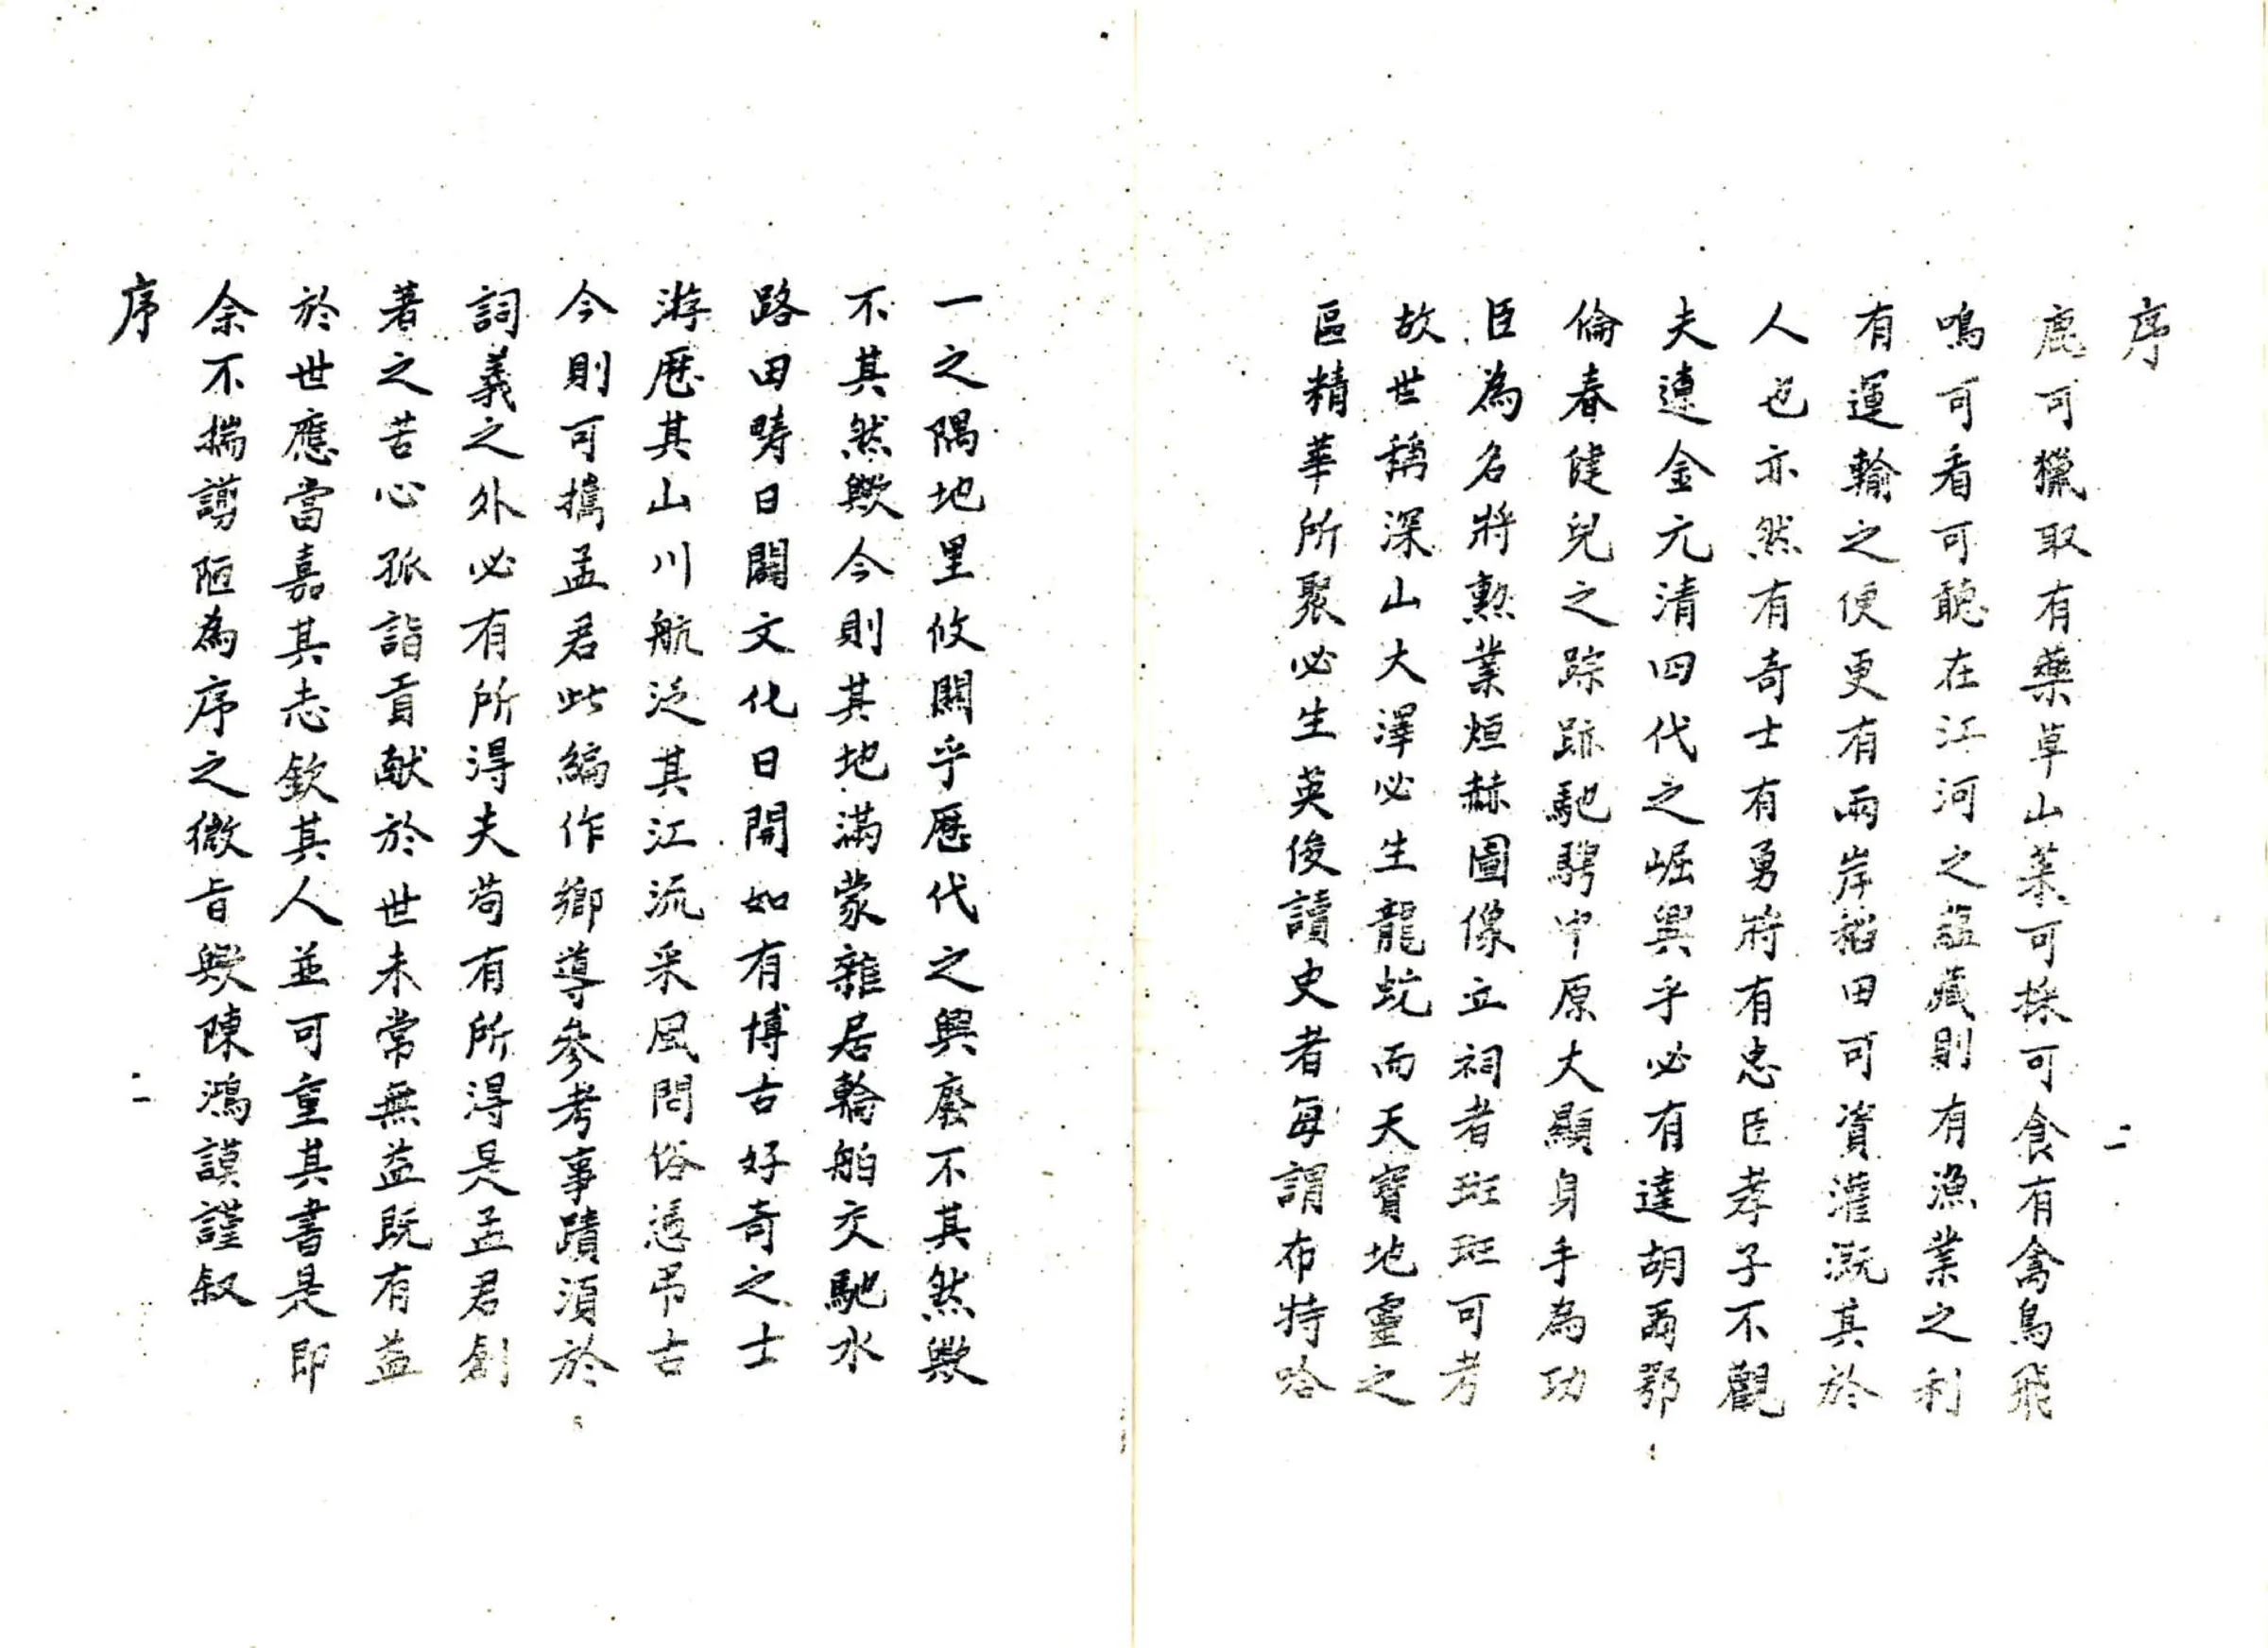 序
鹿可獵取有藥草山菜可採可食有禽鳥飛
鳴可看可聽在江河之蘊藏則有漁業之利
有運輸之便更有兩岸稻田可資灌溉其於
人也亦然有奇士有勇將有忠臣孝子不觀
夫遼金元清四代之崛興乎必有達胡爾鄂
倫春健兒之踪跡馳騁中原大顯身手為功
臣為名將勲業烜赫圖像立祠者斑斑可考
故世稱深山大澤必生龍蛇而天寶地靈之
區精華所聚必生英俊讀史者每謂布特哈
二
一之隅地里攸関乎歷代之興廢不其然歟
不其然歟今則其地滿蒙雜居輪舶交馳水
路田疇日闢文化日開如有博古好奇之士
游歷其山川航泛其江流采風問俗憑吊古
今則可擕孟君此編作鄉導參考事蹟須於
詞義之外必有所得夫苟有所得是孟君創
著之苦心孤詣貢献於世未常無益既有益
於世應當嘉其志欽其人並可重其書是即
余不揣謭陋為序之微旨歟陳鴻謨謹叙
序
二